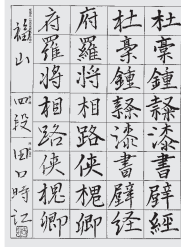 杜稾鍾隸漆書壁經
杜稾鍾隸漆書壁経
府羅將相路俠槐卿
府羅将相路俠槐卿
福山 四段 田口時江